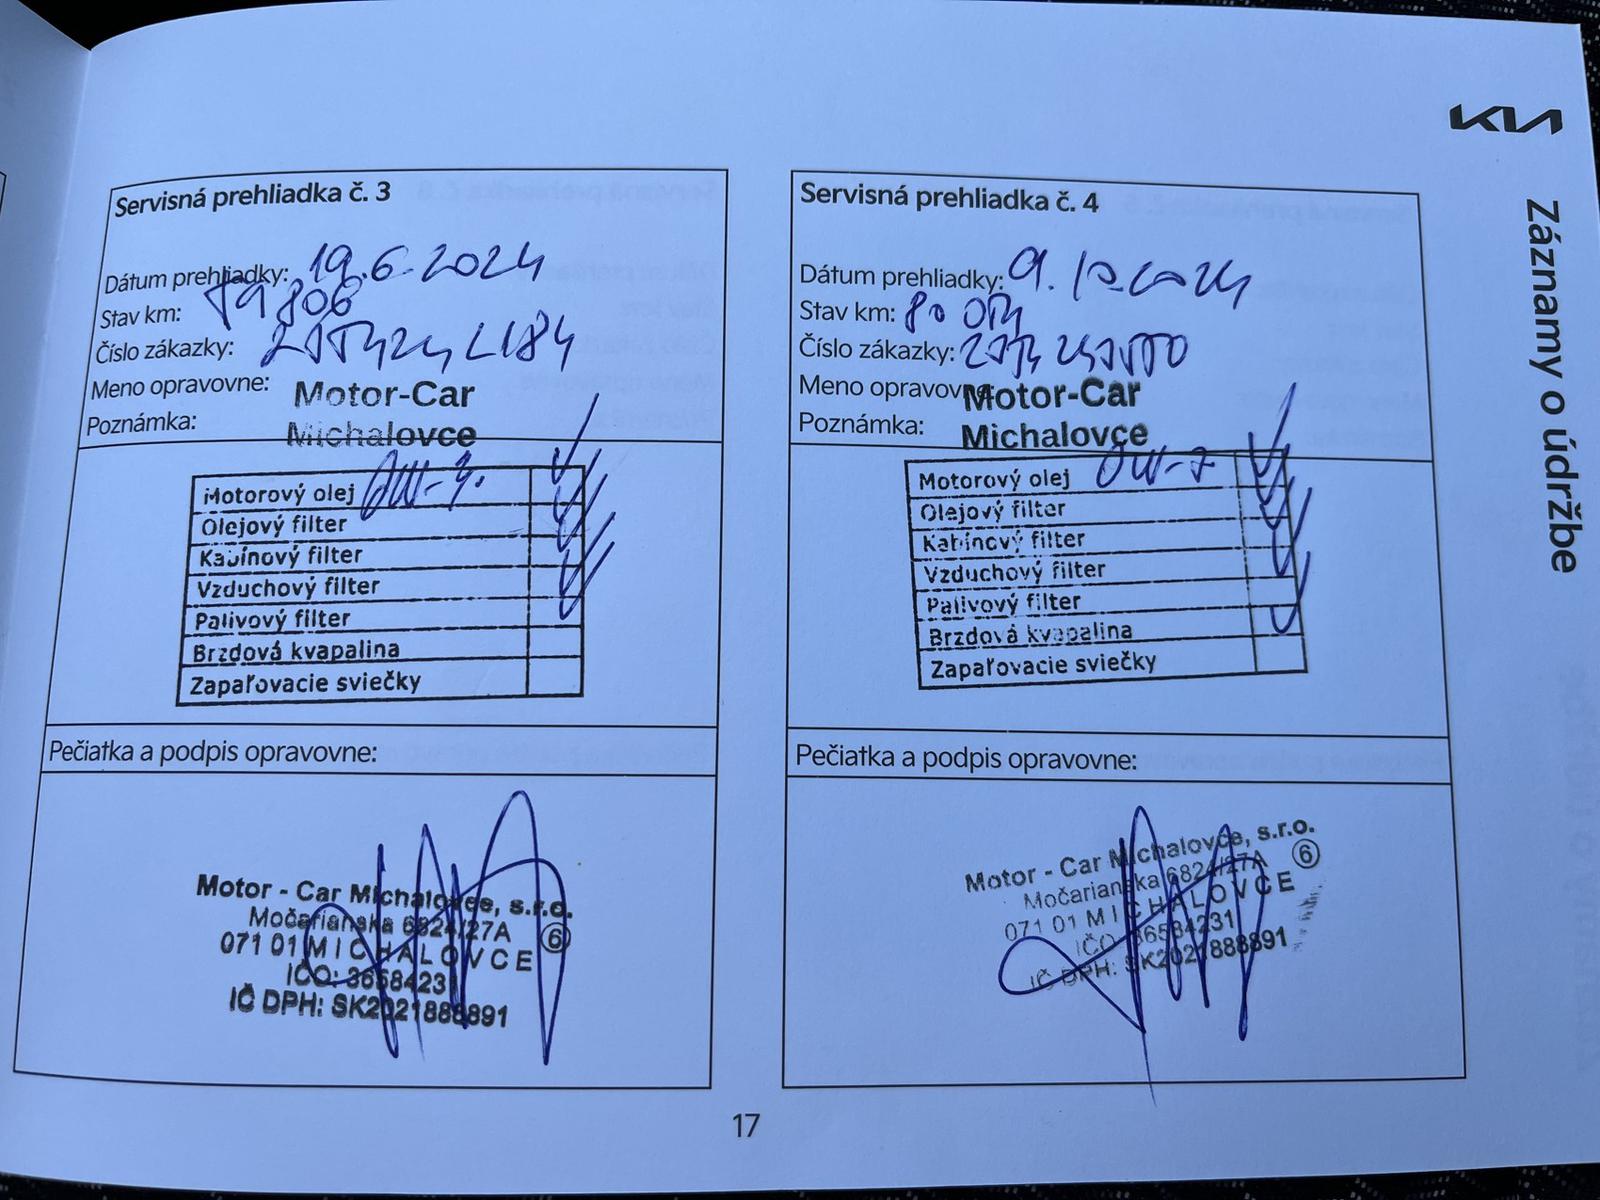 KIA
Záznamy o údržbe
Servisná prehliadka č. 3
Dátum prehliadky: 19.6.2024
Stav km: 79806
Číslo zákazky:
Meno opravovne: Motor-Car
Poznámka: Michalovce
Motorový olej
Olejový filter
Kabínový filter
Vzduchový filter
Palivový filter
Brzdová kvapalina
Zapaľovacie sviečky
Pečiatka a podpis opravovne:
Motor - Car Michalovce, s.r.o.
Močarianska 6824/27A
071 01 MICHALOVCE 6
IČO: 36584231
IČ DPH: SK2021888891
Servisná prehliadka č. 4
Dátum prehliadky: 9.10.2024
Stav km:
Číslo zákazky:
Meno opravovne: Motor-Car
Poznámka: Michalovce
Motorový olej
Olejový filter
Kabínový filter
Vzduchový filter
Palivový filter
Brzdová kvapalina
Zapaľovacie sviečky
Pečiatka a podpis opravovne:
Motor - Car Michalovce, s.r.o.
Močarianska 6824/27A 6
071 01 MICHALOVCE
IČO 36584231
IČ DPH: SK2021888891
17